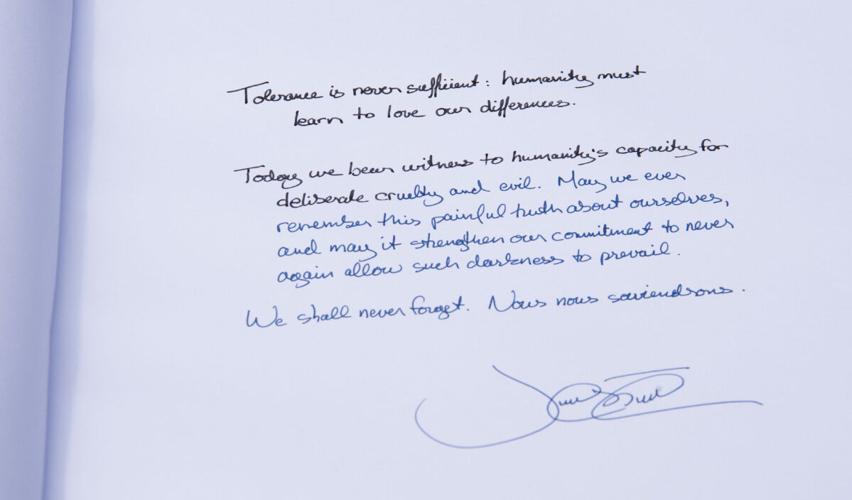 Tolerance is never sufficient: humanity must
learn to love our differences.
Today we bear witness to humanity's capacity for
deliberate cruelty and evil. May we ever
remember this painful truth about ourselves,
and may it strengthen our commitment to never
again allow such darkness to prevail.
We shall never forget. Nous nous souviendrons.